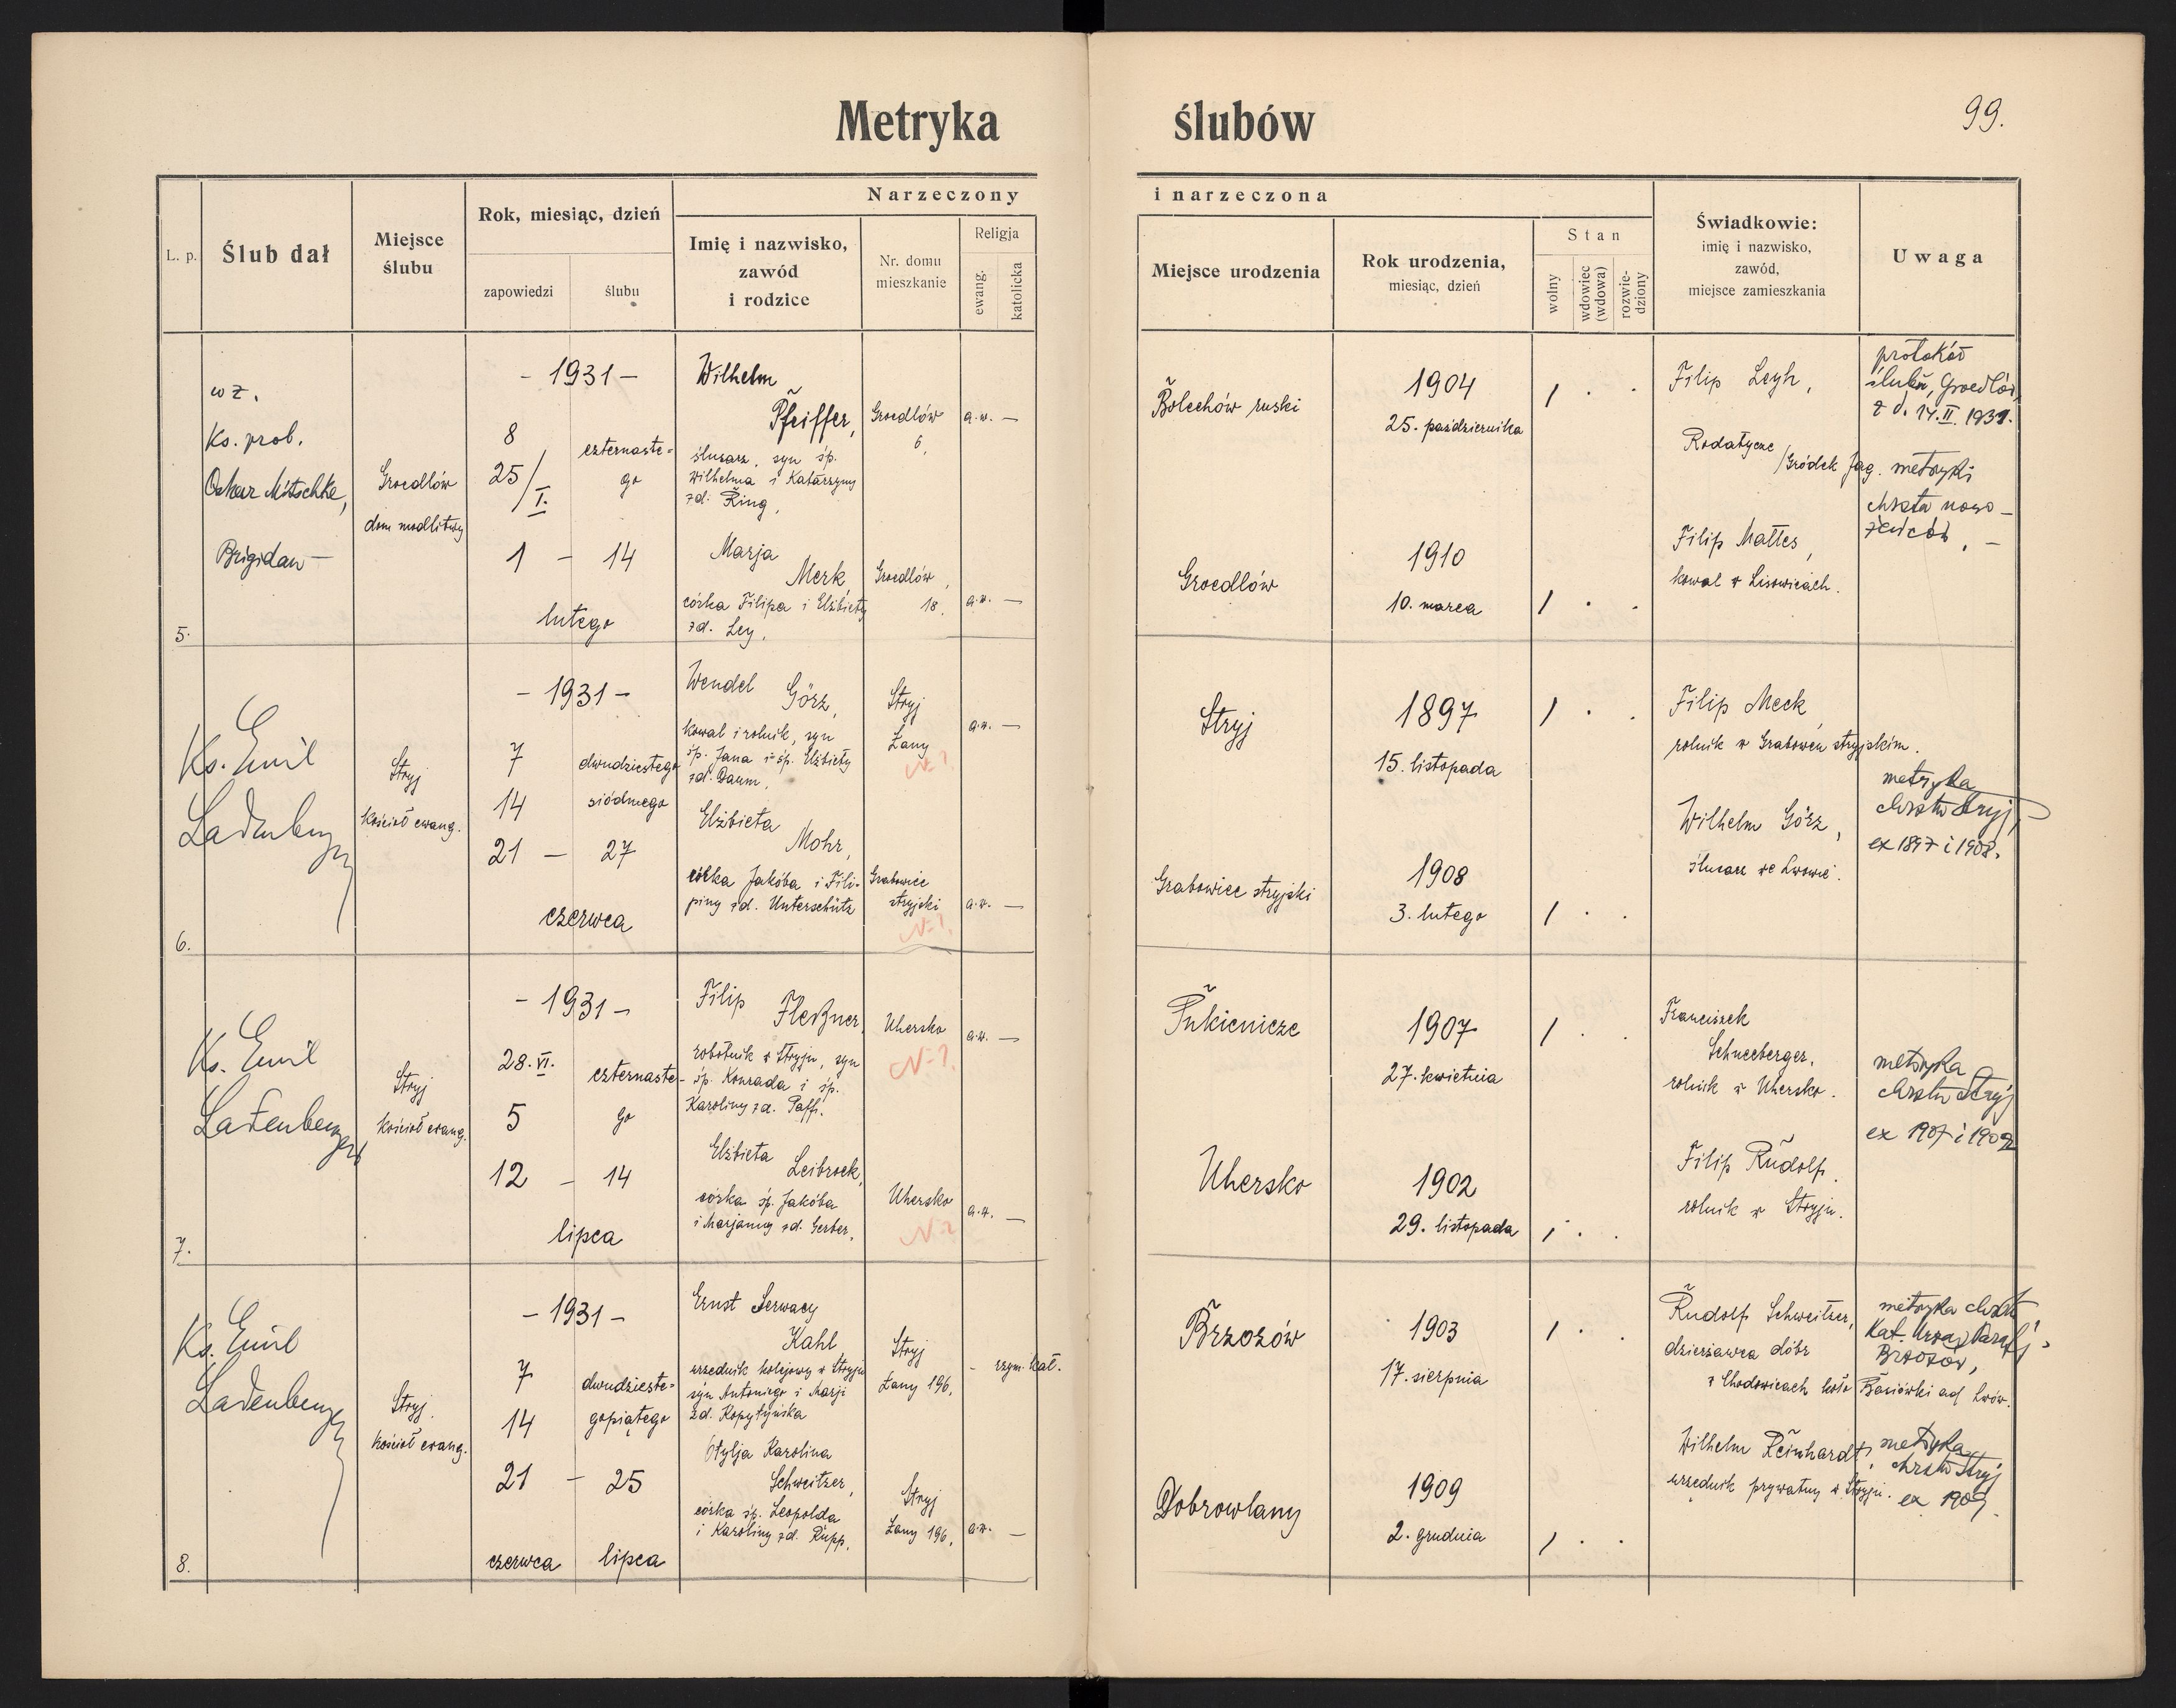 Metryka ślubów
99.
L. p.
Ślub dał
Miejsce ślubu
Rok, miesiąc, dzień
zapowiedzi
ślubu
Narzeczony i narzeczona
Imię i nazwisko,
zawód
i rodzice
Nr. domu
mieszkanie
Religja
ewang.
katolicka
Miejsce urodzenia
Rok urodzenia,
miesiąc, dzień
Stan
wolny
wdowiec (wdowa)
rozwiedziony
Świadkowie:
imię i nazwisko,
zawód,
miejsce zamieszkania
Uwaga
5.
wz.
Ks. prob.
Oskar Mitschke,
Brigidau
Groedlów
dom modlitwy
- 1931 -
8
25/I.
1 - 14
czternaste-
go
lutego
Wilhelm
Pfeiffer,
ślusarz, syn śp.
Wilhelma i Katarzyny
zd. Ring,
Groedlów
6,
a.w. —
Bolechów ruski
1904
25. października
Filip Leyh,
Rodatycze
/Gródek Jag.
protokół
ślubu, Groedlów,
z d. 14.II.1931.
metryki
chrztu nowo-
żeńców. —
Marja
Merk
córka Filipa i Elżbiety
zd. Ley.
Groedlów,
18.
a.w. —
Groedlów
1910
10. marca
Filip Mattes,
kowal w Lisowicach.
6.
Ks. Emil
Ladenberger
Stryj
kościół ewang.
- 1931 -
7
14
21 - 27
dwudziestego
siódmego
czerwca
Wendel Görz,
kowal i rolnik, syn
śp. Jana i śp. Elżbiety
zd. Daum.
Stryj
Łany
N-?
a.w. —
Stryj
1897
15. listopada
Filip Meck,
rolnik w Grabowcu stryjskim.
metryka
chrztu Stryj,
ex 1897 i 1908.
Elżbieta
Mohr,
córka Jakóba i Fili-
piny zd. Unterschütz
Grabowiec
stryjski
N-?
a.w. —
Grabowiec stryjski
1908
3. lutego
Wilhelm Görz,
ślusarz we Lwowie.
7.
Ks. Emil
Ladenberger
Stryj
kościół ewang.
- 1931 -
28.VI.
5
12 - 14
czternaste-
go
lipca
Filip
Fleßner,
robotnik w Stryju, syn
śp. Konrada i śp.
Karoliny zd. Paff.
Uhersko
N-?
a.w. —
Pukienicze
1907
27. kwietnia
Franciszek
Schneeberger,
rolnik w Uhersko.
metryka
chrztu Stryj
ex 1907 i 1902
Elżbieta
Leibrock,
córka śp. Jakóba
i Marjanny zd. Gerber.
Uhersko
N-?
a.w. —
Uhersko
1902
29. listopada
Filip Rudolf,
rolnik w Stryju.
8.
Ks. Emil
Ladenberger
Stryj
kościół ewang.
- 1931 -
7
14
21 - 25
dwudzieste-
gopiątego
czerwca
lipca
Ernst Serwacy
Kahl
urzędnik kolejowy w Stryju
syn Antoniego i Marji
zd. Kopytyńska
Stryj
Łany 196.
- rzym. kat.
Brzozów
1903
17. sierpnia
Rudolf Schweitzer,
dzierżawca dóbr
w Chodowicach koło
metryka chrztu
Kat.
Brzozów,
Basiówki ad Lwów.
Otylja Karolina
Schweitzer,
córka śp. Leopolda
i Karoliny zd. Rupp.
Stryj
Łany 196.
a.w. —
Dobrowlany
1909
2. grudnia
Wilhelm Reinhardt,
urzędnik prywatny w Stryju.
metryka
chrztu Stryj
ex 1909.